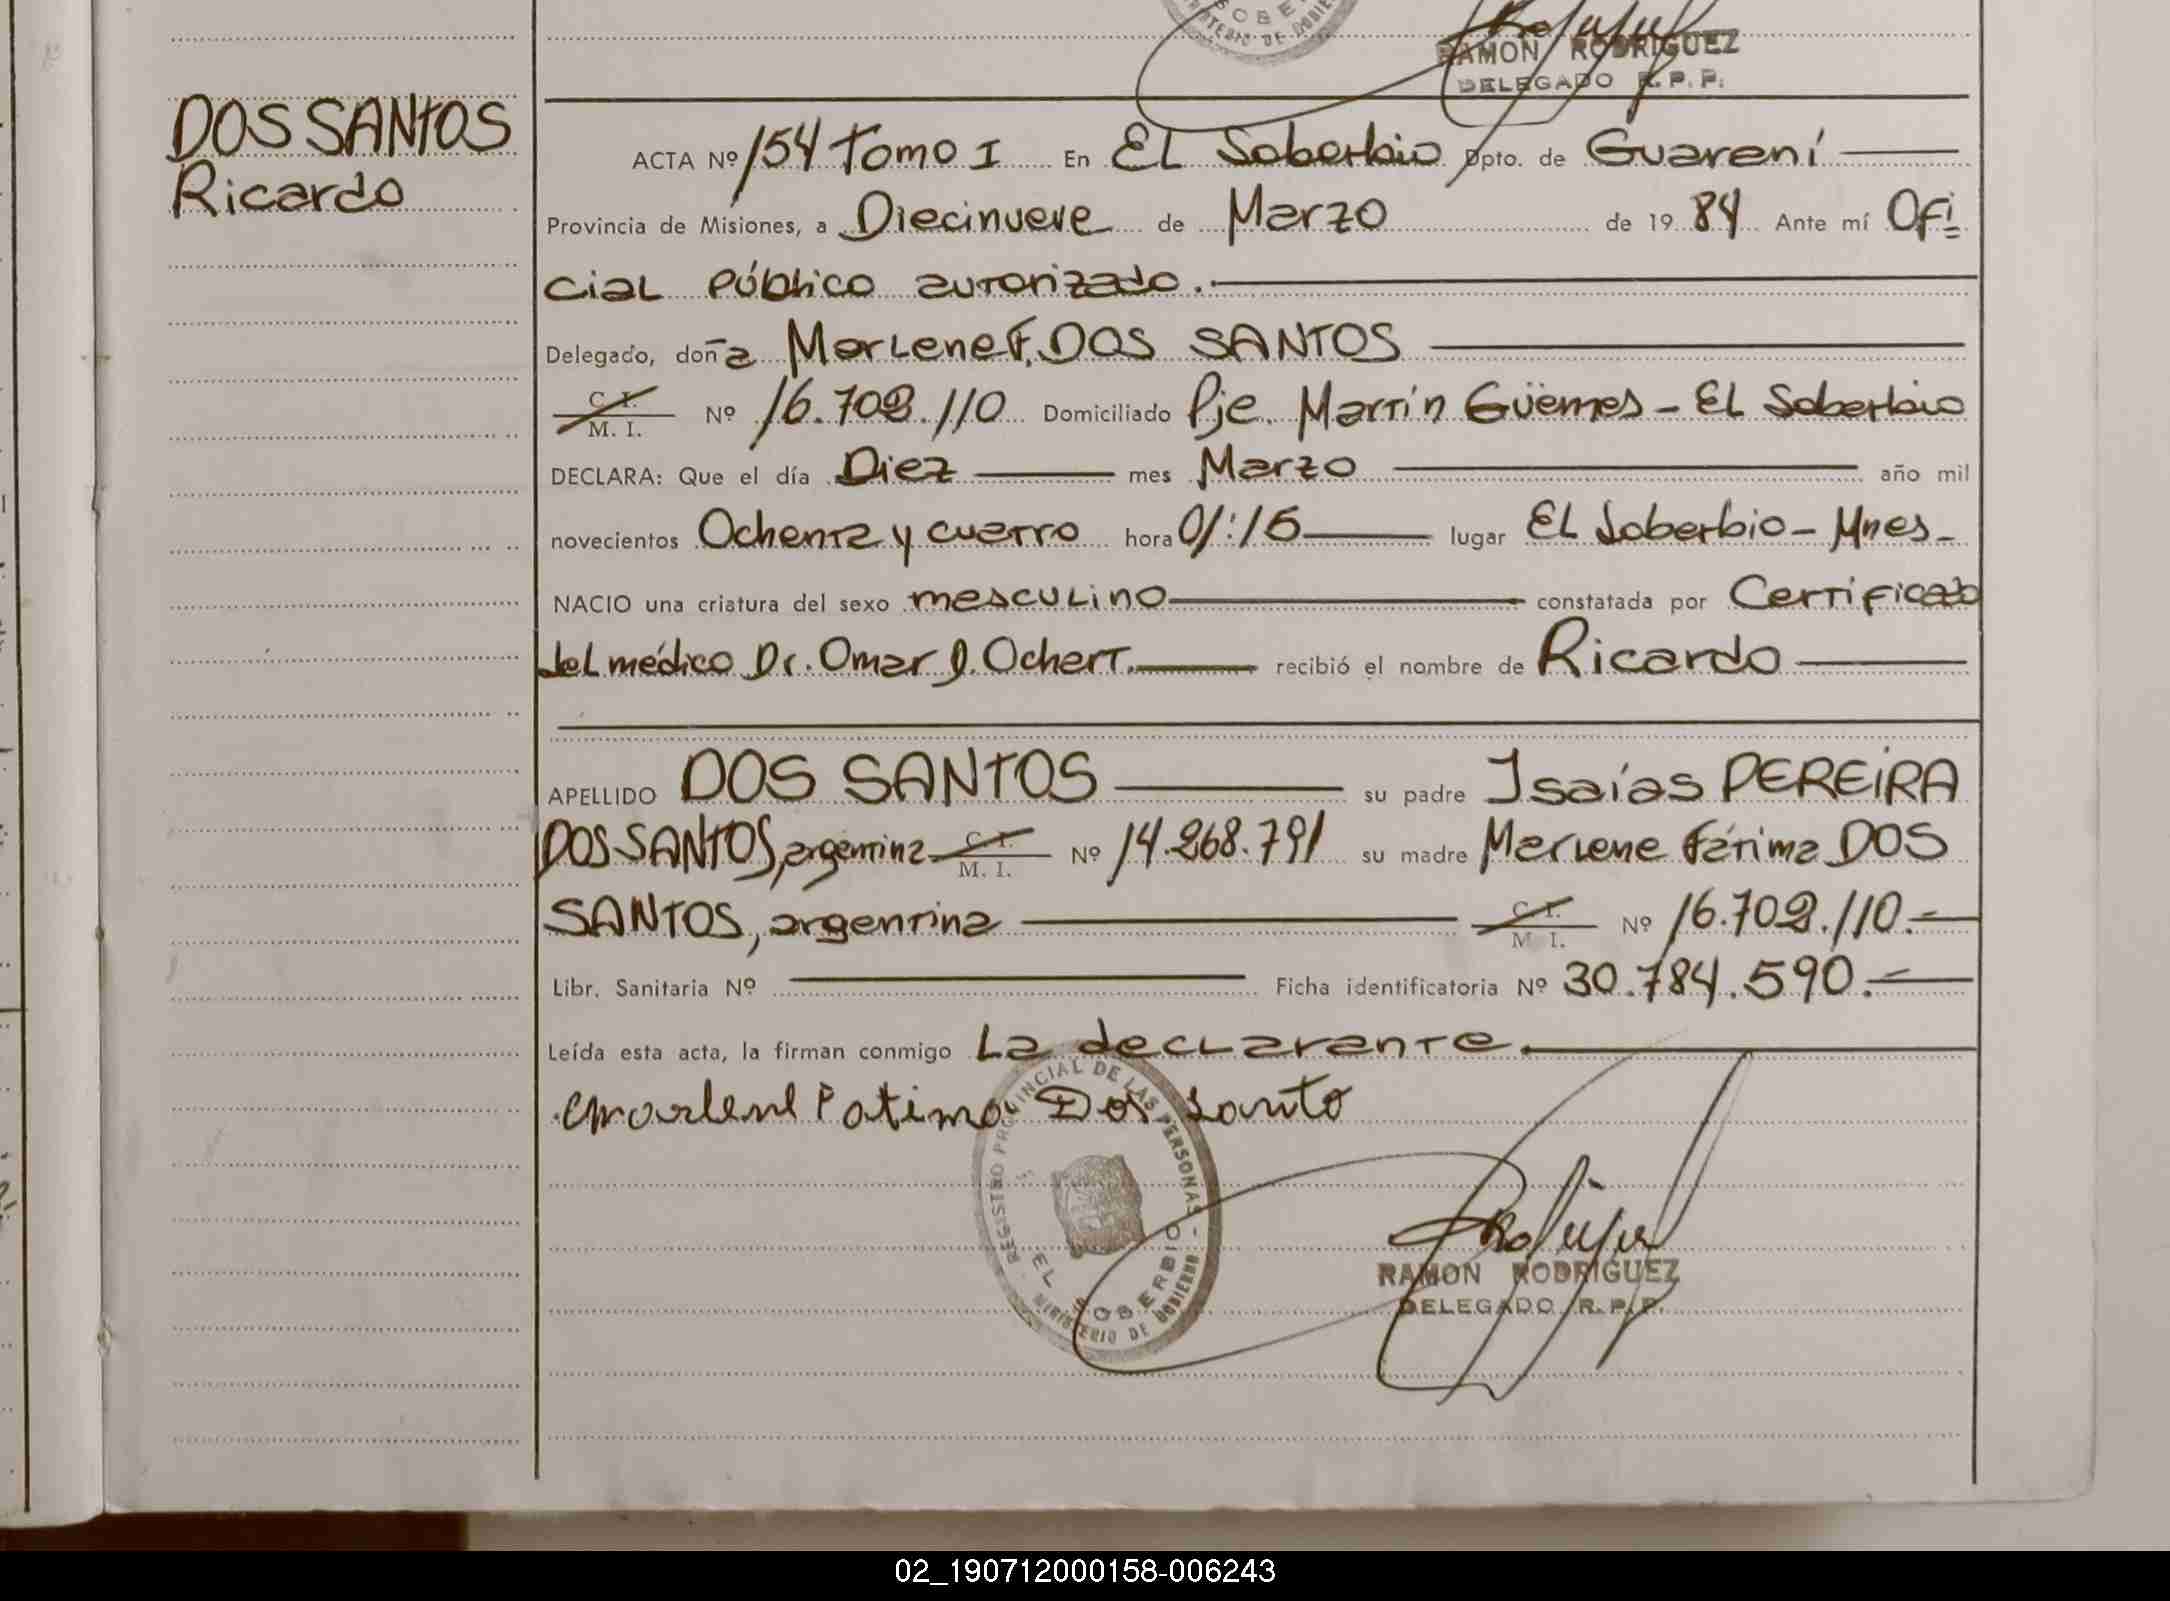 SOBE
MINISTERIO DE GOBIE
RAMON RODRIGUEZ
DELEGADO R.P.P.
DOS SANTOS
Ricardo
ACTA Nº 154 Tomo I En EL Soberbio Dpto. de Guaraní
Provincia de Misiones, a Diecinueve de Marzo de 1984 Ante mí Ofi
cial Público autorizado.
Delegado, doña Marlene F. DOS SANTOS
C. I.
M. I. Nº 16.702.110 Domiciliado Pje. Martín Güemes - EL Soberbio
DECLARA: Que el día Diez mes Marzo año mil
novecientos Ochenta y cuatro hora 01:15 lugar EL Soberbio - Mnes-
NACIO una criatura del sexo masculino constatada por Certificado
del médico Dr. Omar D. Ochert. recibió el nombre de Ricardo
APELLIDO DOS SANTOS su padre Isaías PEREIRA
DOS SANTOS, argentina C. I. M. I. Nº 14.268.791 su madre Marlene Fátima DOS
SANTOS, argentina C. I. M. I. Nº 16.702.110.-
Libr. Sanitaria Nº Ficha identificatoria Nº 30.784.590.-
Leída esta acta, la firman conmigo La declarante.
Marlene Fatima Dos Santo
REGISTRO PROVINCIAL DE LAS PERSONAS -
EL SOBERBIO
MINISTERIO DE GOBIERNO
RAMON RODRIGUEZ
DELEGADO R.P.P.
02_190712000158-006243